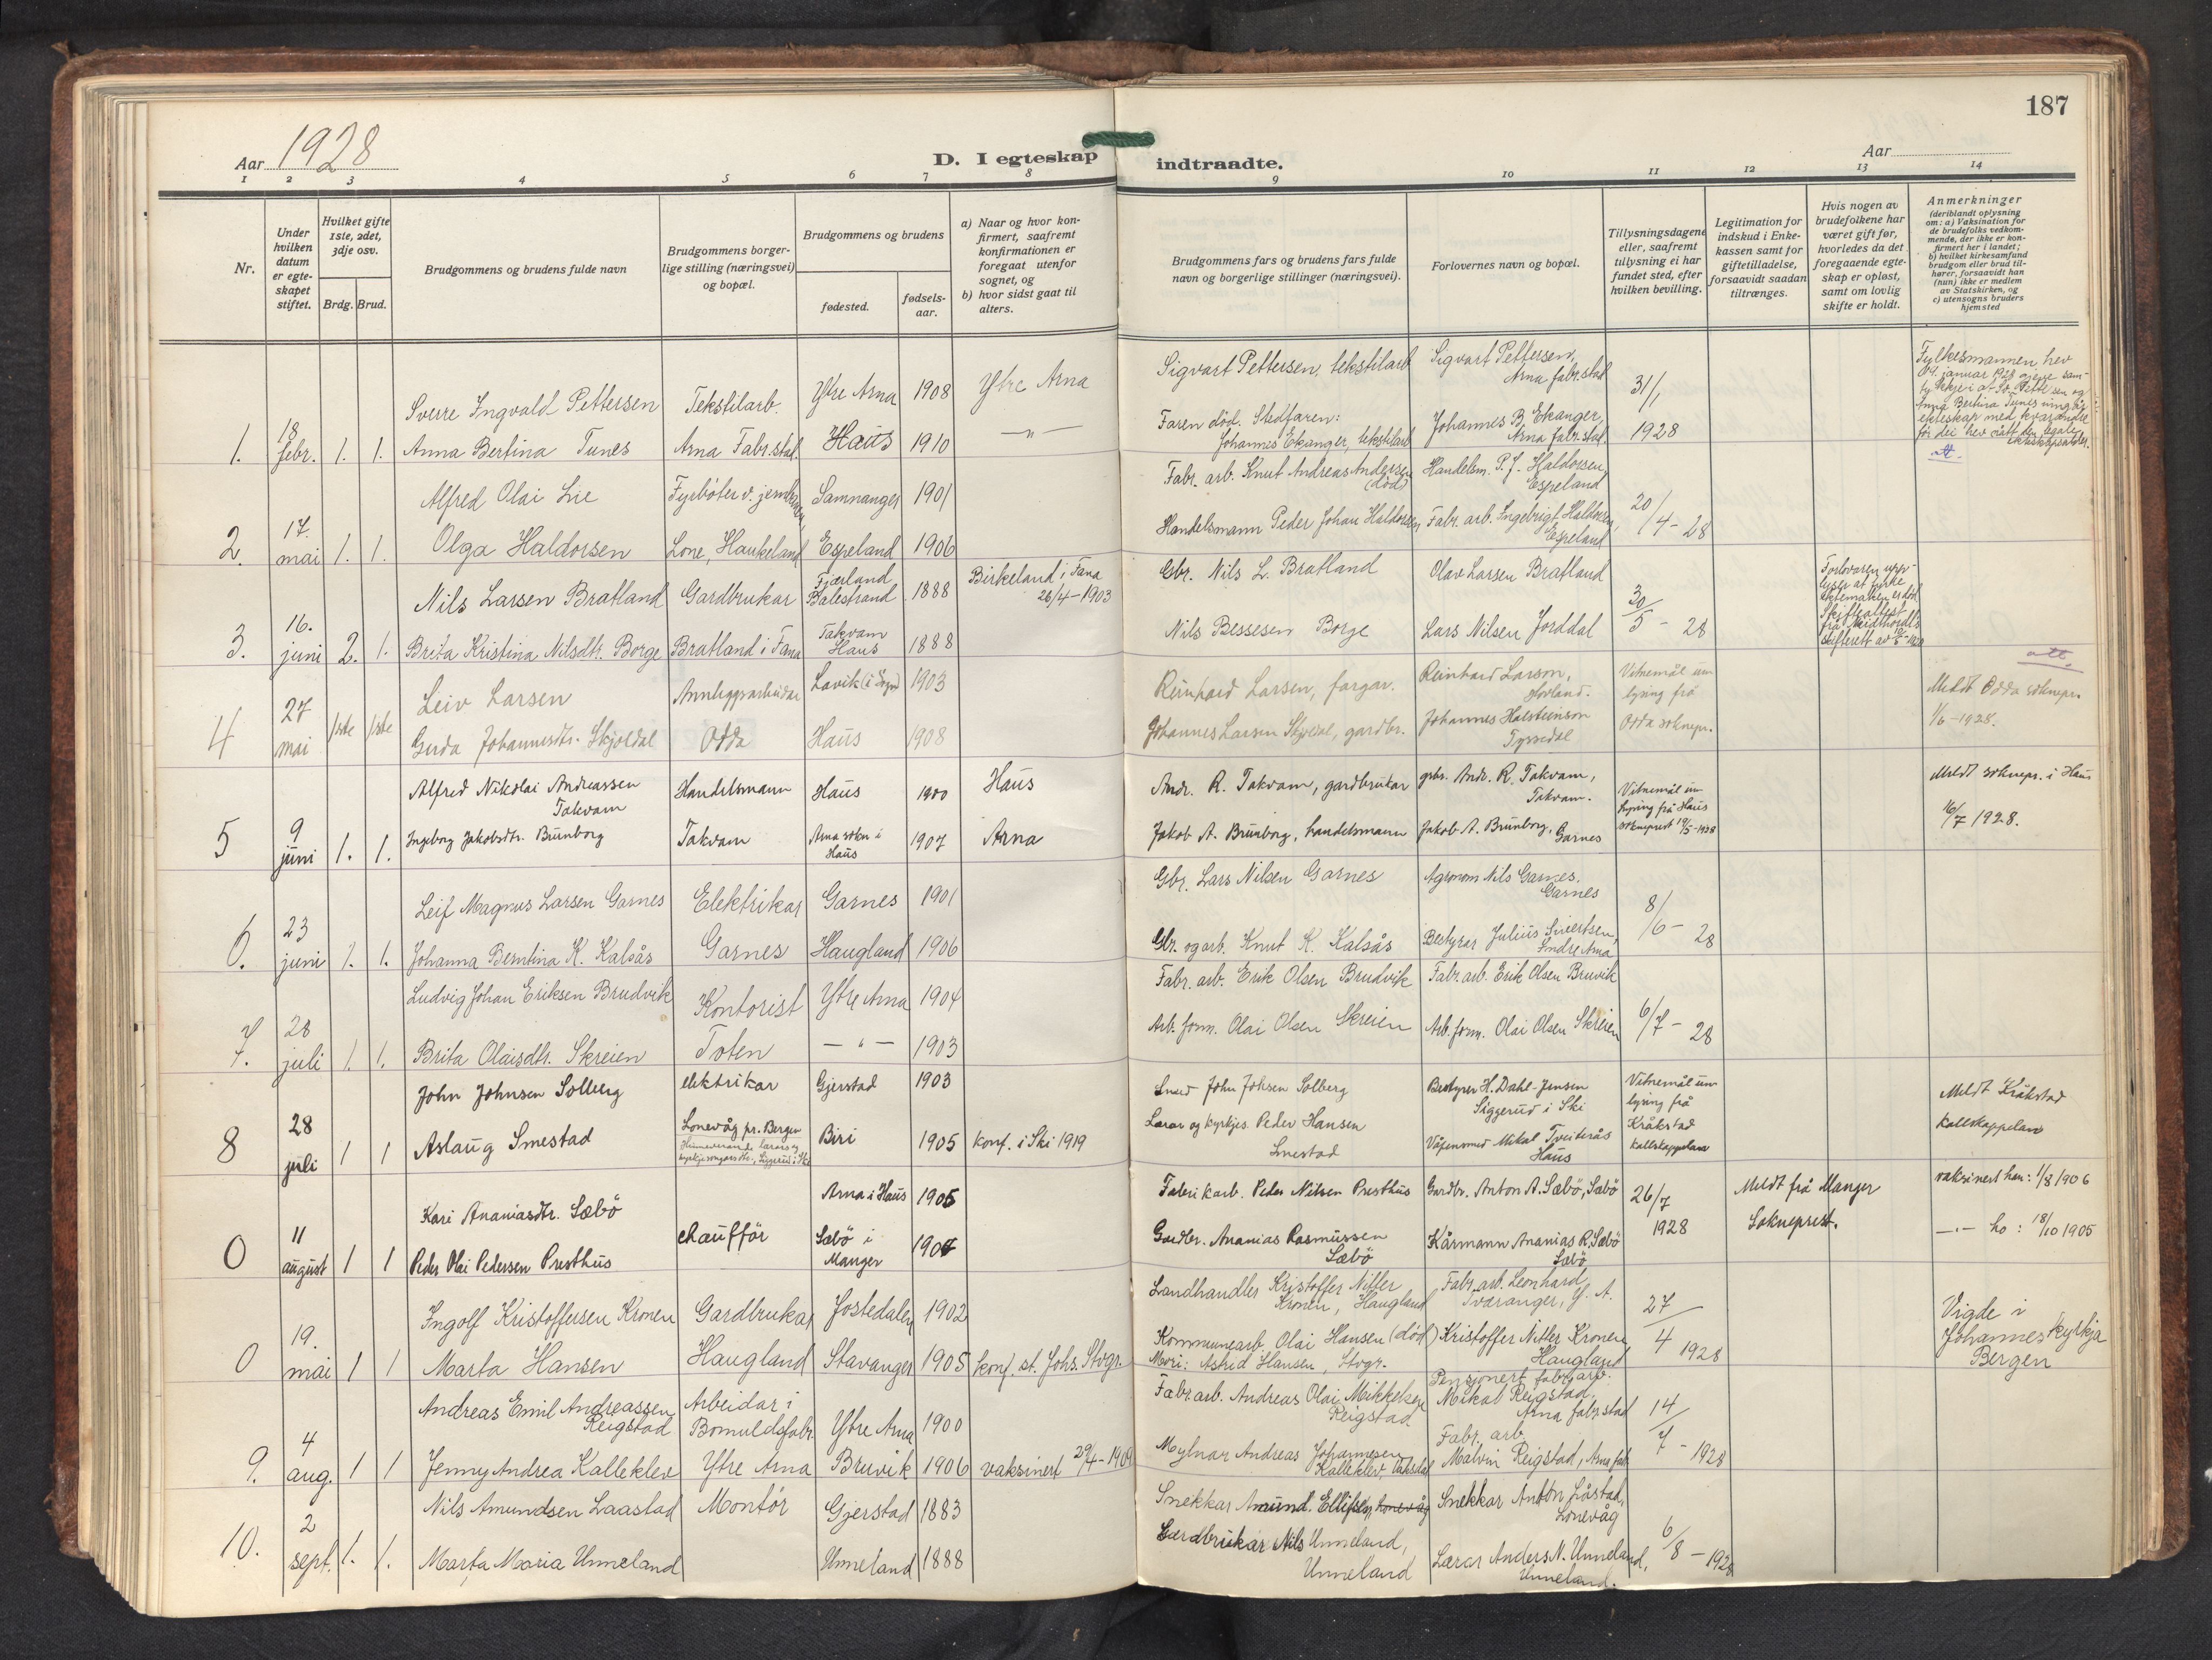 187
Aar 1928
D. I egteskap indtraadte.
Aar
1 2 3 4 5 6 7 8 9 10 11 12 13 14
Nr.
Under hvilken datum er egteskapet stiftet.
Hvilket gifte 1ste, 2det, 3dje osv.
Brdg. Brud.
Brudgommens og brudens fulde navn
Brudgommens borgerlige stilling (næringsvei) og bopæl.
Brudgommens og brudens
fødested.
fødselsaar.
a) Naar og hvor konfirmert, saafremt konfirmationen er foregaat utenfor sognet, og
b) hvor sidst gaat til alters.
Brudgommens fars og brudens fars fulde navn og borgerlige stillinger (næringsvei).
Forlovernes navn og bopæl.
Tillysningsdagene eller, saafremt tillysning ei har fundet sted, efter hvilken bevilling.
Legitimation for indskud i Enkekassen samt for giftetilladelse, forsaavidt saadan tiltrænges.
Hvis nogen av brudefolkene har været gift før, hvorledes da det foregaaende egteskap er opløst, samt om lovlig skifte er holdt.
Anmerkninger
(deriblandt oplysning om: a) Vaksination for de brudefolks vedkommende, der ikke er konfirmert her i landet;
b) hvilket kirkesamfund brudgom eller brud tilhører, forsaavidt han (hun) ikke er medlem av Statskirken, og
c) utensogns bruders hjemsted
1. 18 febr. 1. 1.
Sverre Ingvald Pettersen Tekstilarb. Ytre Arna 1908 Ytre Arna
Anna Bertina Tunes Arna Fabr.stat. Haus 1910 —"—
Sigvart Pettersen, tekstilarb Sigvart Pettersen, Arna fabr.stad
Faren död. Stedfaren: Johannes Ekanger, tekstilarb Johannes B. Ekanger, Arna fabr.stad.
31/1 1928
Fylkesmannen hev
januar 1928
Anna Bertina Tunes
ekteskap med kvarandre
att.
2. 17. mai 1. 1.
Alfred Olai Lie Fyrböter v. Samnanger 1901
Olga Haldorsen Lone, Haukeland Espeland 1906
Fabr. arb. Knut Andreas Andersen (död) Handelsm. P. J. Haldorsen, Espeland
Handelsmann Peder Johan Haldorsen, Fabr. arb. Ingebrigt Haldorsen Espeland
20/4 - 28
3. 16. juni 2. 1.
Nils Larsen Bratland Gardbrukar Fjærland Balestrand 1888 Birkeland i Fana 26/4 - 1903
Brita Kristina Nilsdtr. Borge Bratland i Fana Takvam Haus 1888
Gbr. Nils L. Bratland Olav Larsen Bratland
Nils Bessesen Borge Lars Nilsen Jorddal
30/5 - 28
Forlovaren
Skifteattest
4 27 mai 1ste 1ste
Leiv Larsen Annleggsarbeidar Lavik (i Sogn) 1903
Guda Johannesdtr. Skjoldal Odda Haus 1908
Reinhard Larsen, fargar. Reinhard Larson,
Johannes Larsen Skjoldal, gardbr. Johannes Halsteinson Tyssedal
Vitnemål um lysing frå Odda soknepr.
att.
Meldt Odda soknepr. 1/6 - 1928.
5 9 juni 1. 1.
Alfred Nikolai Andreassen Takvam Handelsmann Haus 1900 Haus
Ingeborg Jakobsdtr. Brunborg Takvam Arna sokn i Haus 1907 Arna
Andr. R. Takvam, gardbrukar gbr. Andr. R. Takvam, Takvam.
Jakob A. Brunborg, handelsmann Jakob A. Brunborg, Garnes
Vitnemål um lysing frå Haus sokneprest 19/5 - 1928
Meldt soknepr. i Haus 16/7 1928.
6. 23 juni 1. 1.
Leif Magnus Larsen Garnes Elektrikar Garnes 1901
Johanna Berntina K. Kalsås Garnes Haugland 1906
Gbr. Lars Nilsen Garnes Agronom Nils Garnes. Garnes
Gbr. og arb. Knut K. Kalsås Bestyrar Julius Sivertsen, Indre Arna
8/6 - 28
7. 28 juli 1. 1.
Ludvig Johan Eriksen Brudvik Kontorist Ytre Arna 1904
Brita Olaisdtr. Skreien Toten — " — 1903
Fabr. arb. Erik Olsen Brudvik Fabr. arb. Erik Olsen Bruvik
Arb. form. Olai Olsen Skreien Arb. form. Olai Olsen Skreien
6/7 - 28
8 28 juli 1 1
John Johnsen Solberg elektrikar Gjerstad 1903
Aslaug Smestad Lonevåg pr. Bergen Biri 1905 konf. i Ski 1919
Smed John Johsen Solberg Bestyrer H. Dahl-Jensen Siggerud i Ski
Lærar og kyrkjes. Peder Hansen Smestad Våpensmed Mikal Tveiterås Haus
Vitnemål um lysing frå Kråkstad kallskappelan
Meldt Kråkstad kallskappelan
0 11 august 1 1
Kari Ananiasdtr. Sæbö Arna i Haus 1905
Peder Olai Pedersen Presthus chaufför Sæbö i Manger 1904
Fabrikarb. Peder Nilsen Presthus Gardbr. Anton A. Sæbö, Sæbö
Gardbr. Ananias Rasmussen Sæbö Kårmann Ananias R. Sæbö Sæbö
26/7 1928
Meldt frå Manger Sokneprest.
vaksinert han: 1/8 1906
—"— ho: 18/10 1905
0 19. mai 1 1
Ingolf Kristoffersen Kronen Gardbrukar Jostedalen 1902
Marta Hansen Haugland Stavanger 1905 konf. st. Johs. Stvgr.
Landhandler Kristoffer Nitter Kronen, Haugland Fabr. arb. Leonhard Tváranger, Y. A.
Kommunearb. Olai Hansen (död) Mori: Astrid Hansen, Stvgr. Kristoffer Nitter Kronen Haugland
27/4 1928
Vigde i Johanneskyrkja Bergen
9. 4 aug. 1 1
Andreas Emil Andreassen Reigstad Arbeidar i Bomuldsfabr. Ytre Arna 1900
Jenny Andrea Kalleklev Ytre Arna Bruvik 1906 vaksinert 29/4 - 1909
Fabr. arb. Andreas Olai Mikkelsen Reigstad Pensjonert fabr. arb. Mikal Reigstad, Arna fabr. stad
Mylnar Andreas Johannesen Kalleklev, Vaksdal Fabr. arb. Malvin Reigstad, Arna fab.
14/7 - 1928
10. 2 sept. 1. 1.
Nils Amundsen Laastad Montör Gjerstad 1883
Marta Maria Unneland Unneland 1888
Snekkar Amund. Ellifsen, Lonevåg Snekkar Anton Låstad, Lonevåg
Gardbrukar Nils Unneland, Unneland Lærar Anders N. Unneland, Unneland.
6/8 - 1928